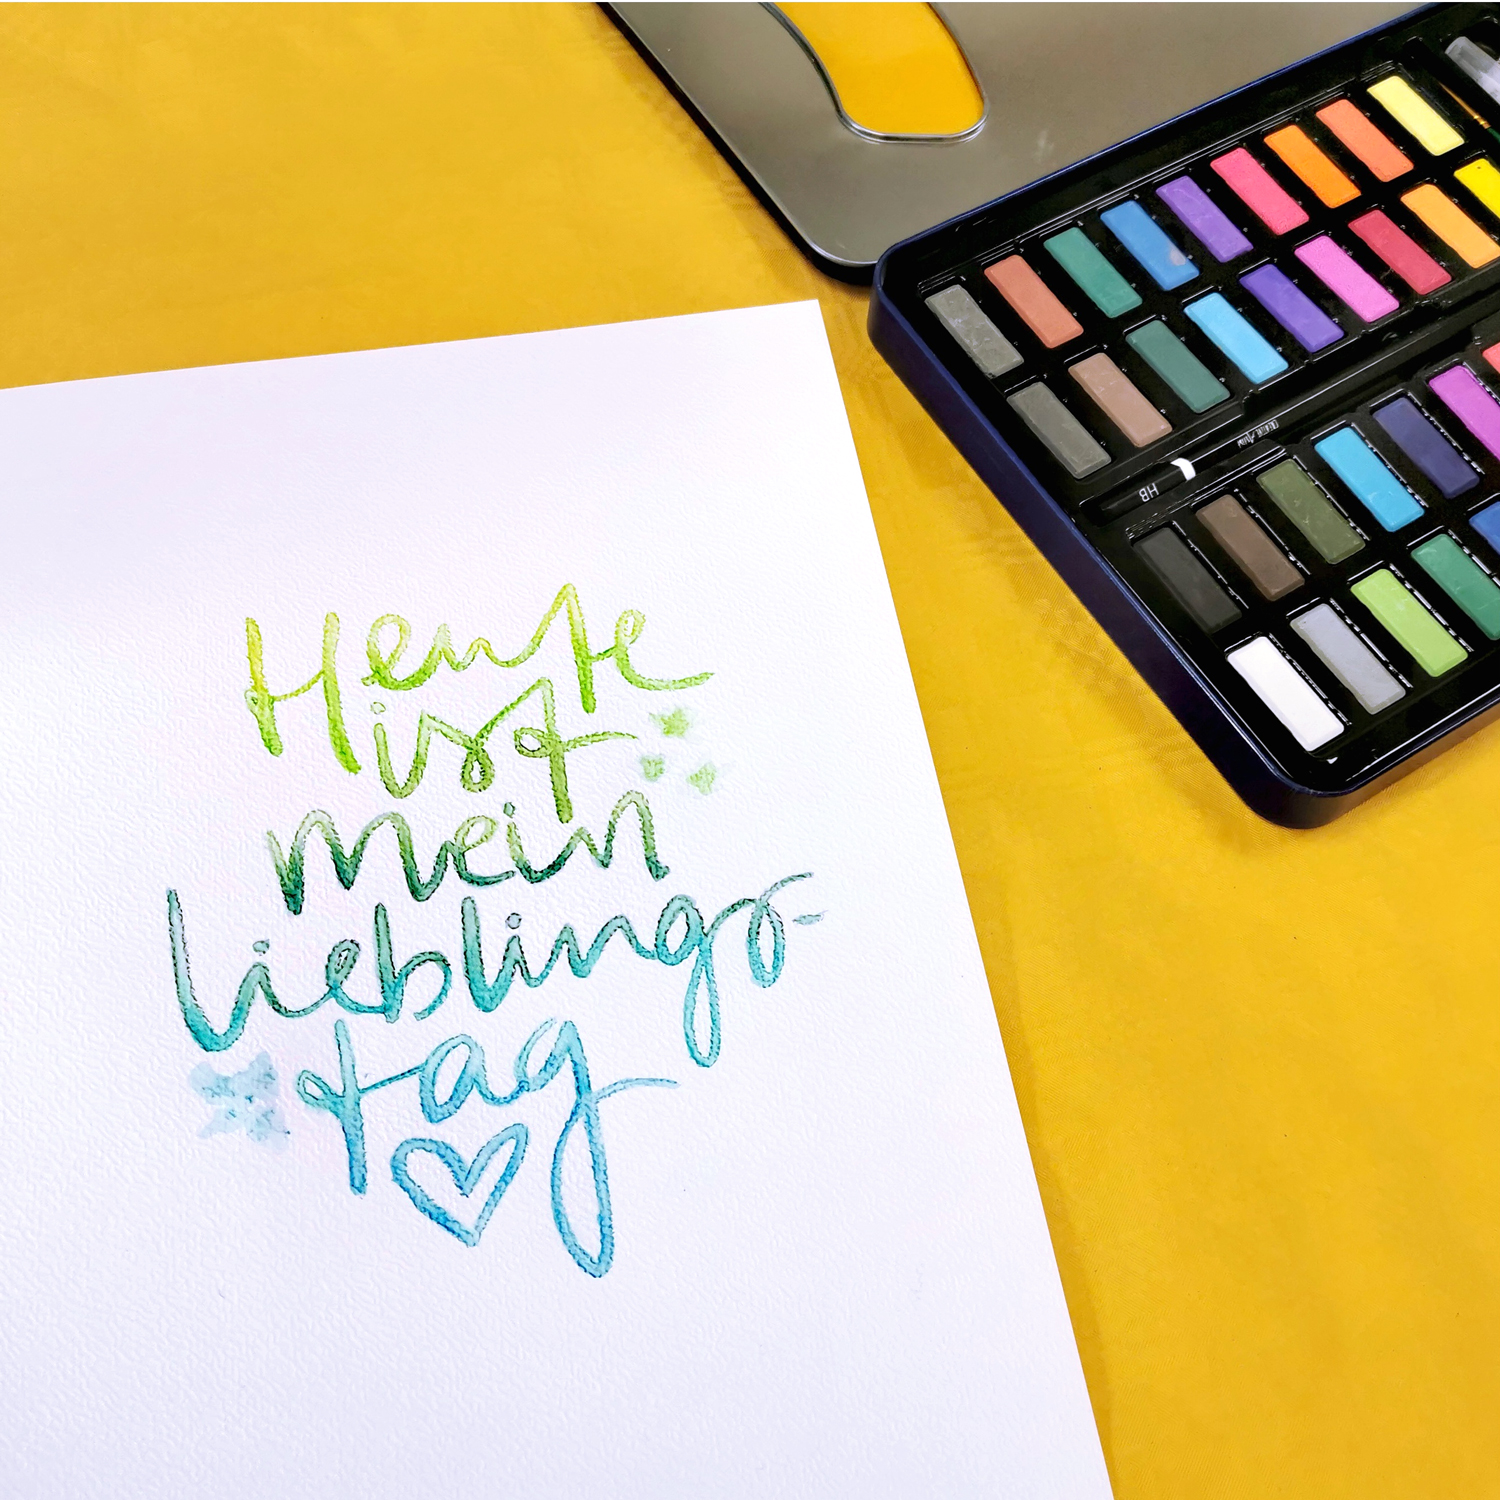 Heute
ist
mein
Lieblings-
tag
HB